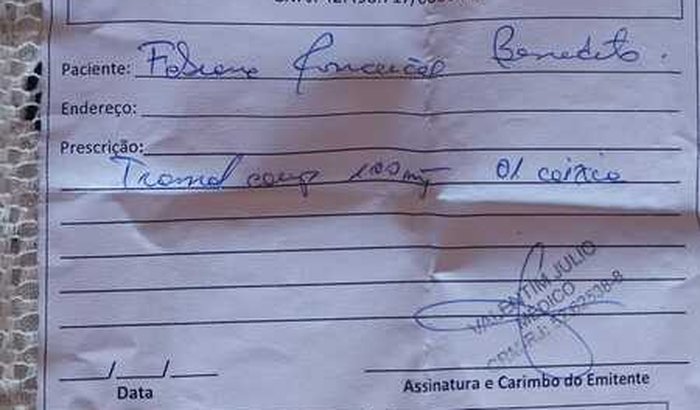 Paciente: Fabiana Conceição Benedito.
Endereço:
Prescrição:
Tramal comp 100mg 01 caixa
VALENTIM JULIO
MÉDICO
Data
Assinatura e Carimbo do Emitente